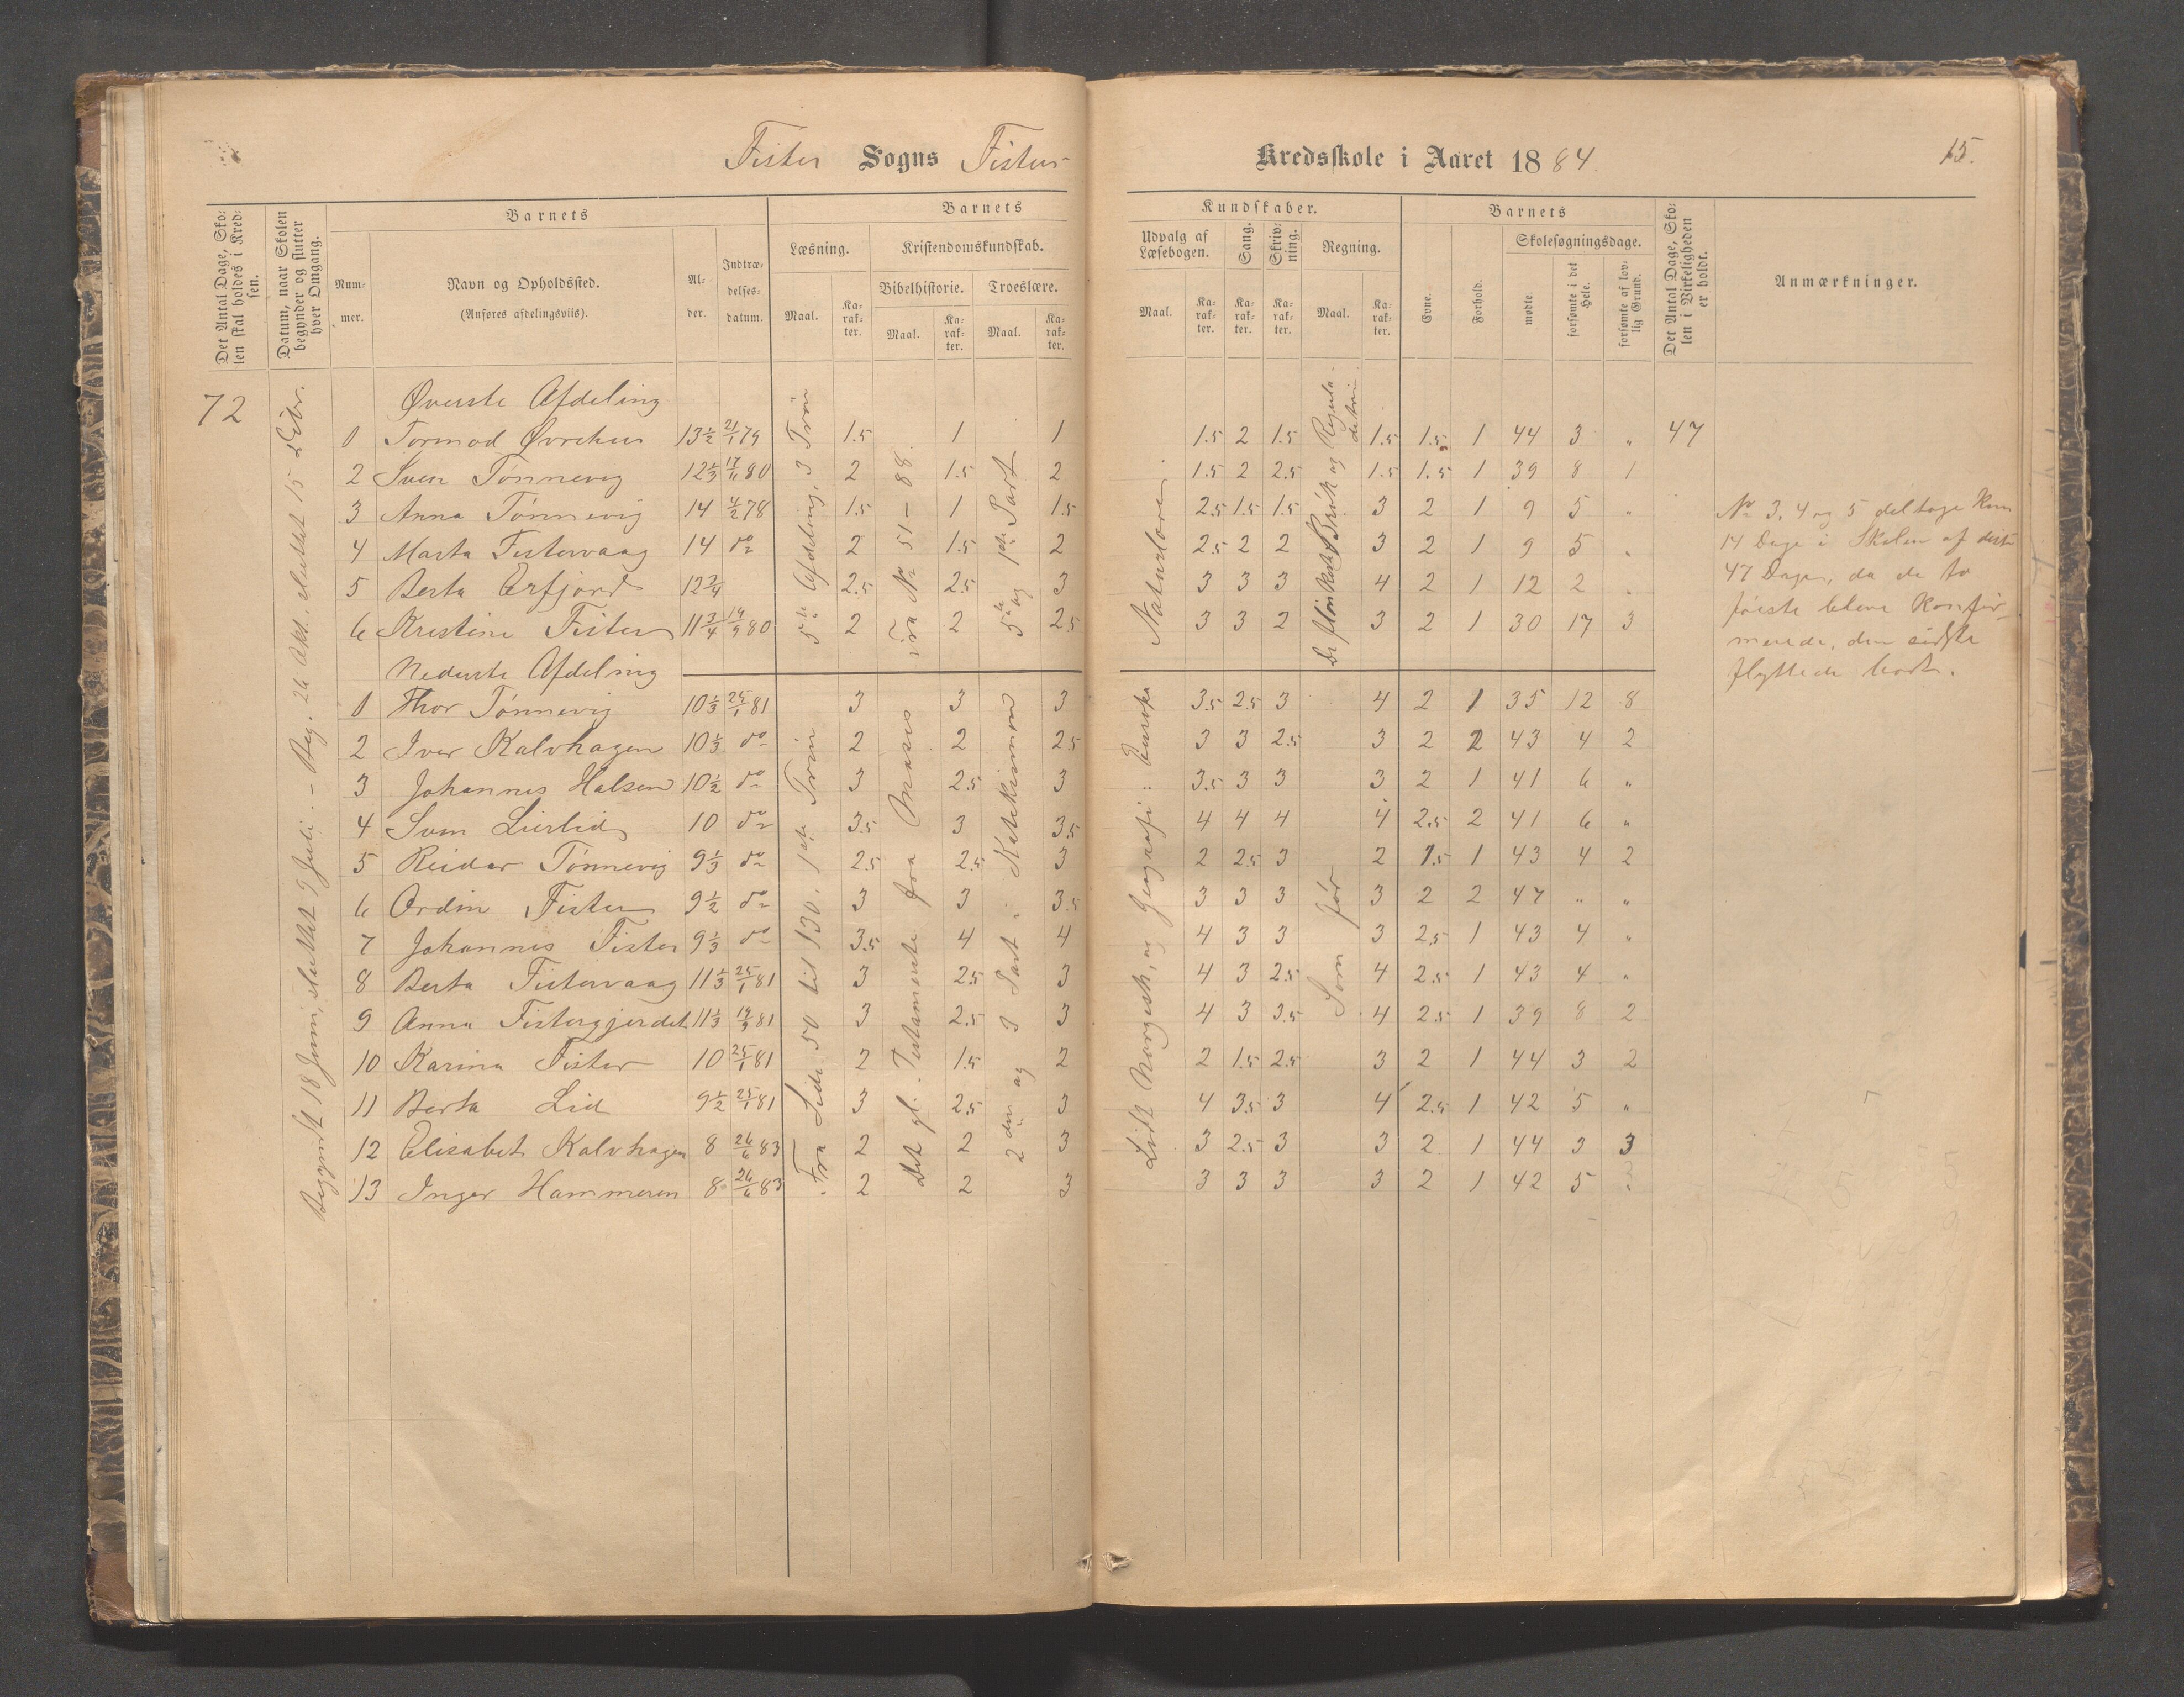 Fister Sogns Fister Kredsskole i Aaret 1884. 15.
Det Antal Dage, Skolen skal holdes i Kredsen.
Datum, naar Skolen begynder og slutter hver Omgang.
Barnets
Nummer.
Navn og Opholdssted.
(Anføres afdelingsviis).
Alder.
Indtrædelsesdatum.
Barnets Kundskaber.
Læsning.
Maal. Karakter.
Kristendomskundskab.
Bibelhistorie. Troeslære.
Maal. Karakter. Maal. Karakter.
Udvalg af Læsebogen.
Maal. Karakter.
Sang. Karakter.
Skrivning. Karakter.
Regning.
Maal. Karakter.
Barnets
Evne. Forhold.
Skolesøgningsdage.
mødte. forsømte i det Hele. forsømte af lovlig Grund.
Det Antal Dage, Skolen i Virkeligheden er holdt.
Anmærkninger.
72
Begyndt 18 Juni, sluttet 9 Juli. – Beg. 26 Okt., sluttet 15 Debr.
Øverste Afdeling
5te Afdeling, 3 Trin
Fra No 51 – 88.
5te og 1ste Part
Naturlære.
0 Tormod Øvrehus 13½ 21/1 79 1.5 1 1 1.5 2 1.5 1.5 1.5 1 44 3 " 47
2 Sven Tønnevig 12⅓ 17/11 80 2 1.5 2 1.5 2 2.5 1.5 1.5 1 39 8 1
3 Anna Tønnevig 14 4/2 78 1.5 1 1.5 2.5 1.5 1.5 3 2 1 9 5 "
4 Marta Fistervaag 14 do 2 1.5 2 2.5 2 2 3 2 1 9 5 "
5 Berta Erfjord 12¾ 2.5 2.5 3 3 3 3 4 2 1 12 2 "
6 Kristine Fister 11¾ 14/9 80 2 2 2.5 3 3 2 3 2 1 30 17 3
No 3, 4 og 5 deltoge kun
14 Dage i Skolen af disse
47 Dage, da de to
første bleve konfir-
merede, den sidste
flyttede bort.
Nederste Afdeling
Fra Side 50 til 130, 1ste Trin
Det gl. Testamente fra Moses
2den og 3 Part "
Lidt Norgesk. og Geografi:
Som før
0 Thor Tønnevig 10⅓ 25/1 81 3 3 3 3.5 2.5 3 4 2 1 35 12 8
2 Iver Kalvhagen 10⅓ do 2 2 2.5 3 3 2.5 3 2 2 43 4 2
3 Johannes Halsen 10½ do 3 2.5 3 3.5 3 3 3 2 1 41 6 "
4 Sven Lierlid 10 do 3.5 3 3.5 4 4 4 4 2.5 2 41 6 "
5 Reidar Tønnevig 9⅓ do 2.5 2.5 3 2 2.5 3 2 1.5 1 43 4 2
6 Ordin Fister 9½ do 3 3 3.5 3 3 3 3 2 2 47 " "
7 Johannes Fister 9⅓ do 3.5 4 4 4 3 3 3 2.5 1 43 4 "
8 Berta Fistervaag 11⅓ 25/1 81 3 2.5 3 4 3 2.5 4 2.5 1 43 4 "
9 Anna Fistergjerdet 11⅓ 19/9 81 3 2.5 3 4 3 3.5 4 2.5 1 39 8 2
10 Karina Fister 10 25/1 81 2 1.5 2 2 1.5 2.5 3 2 1 44 3 2
11 Berta Lid 9½ 25/1 81 3 2.5 3 4 3.5 3 4 2.5 1 42 5 "
12 Elisabet Kalvhagen 8 26/6 83 2 2 3 3 2.5 3 3 2 1 44 3 3
13 Inger Hammeren 8 26/6 83 2 2 3 3 3 3 3 2 1 42 5 "